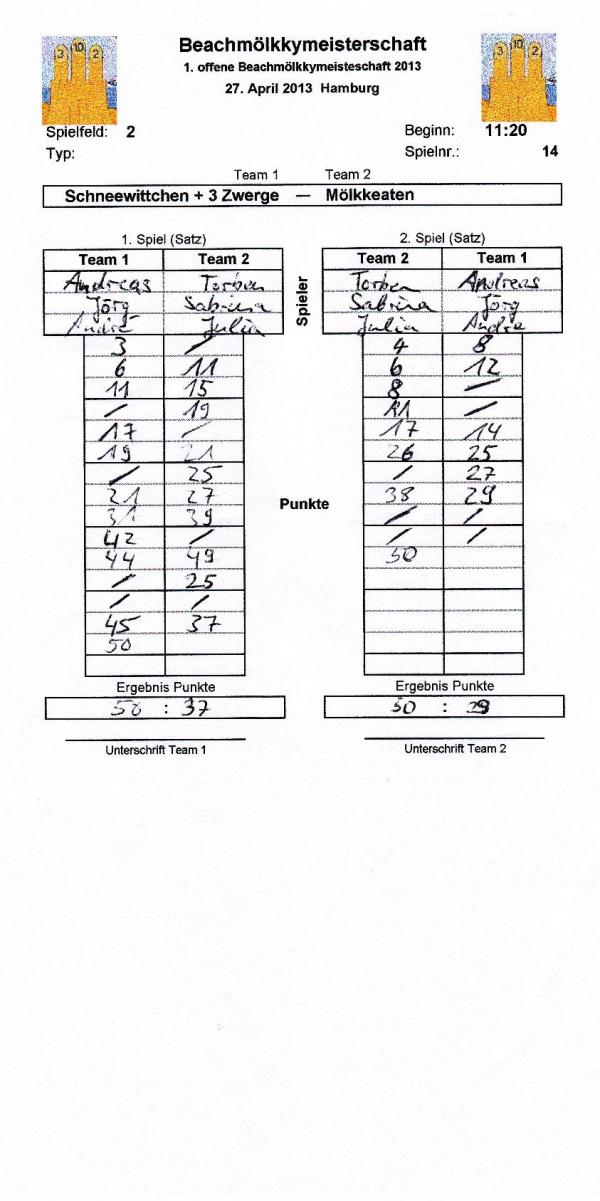 3 10 2
3 10 2
Beachmölkkymeisterschaft
1. offene Beachmölkkymeisteschaft 2013
27. April 2013 Hamburg
Spielfeld: 2 Beginn: 11:20
Typ: Spielnr.: 14
Team 1 Team 2
Schneewittchen + 3 Zwerge — Mölkkeaten
1. Spiel (Satz) 2. Spiel (Satz)
Team 1 Team 2 Team 2 Team 1
Andreas Torben Spieler Torben Andreas
Jörg Sabrina Sabrina Jörg
André Julia Julia Andre
3 / 4 8
6 11 6 12
11 15 8 /
/ 19 11 /
17 / 17 14
19 21 26 25
/ 25 / 27
21 27 38 29
Punkte
31 39 / /
42 / / /
44 49 50
/ 25
/ /
45 37
50
Ergebnis Punkte Ergebnis Punkte
50 : 37 50 : 29
Unterschrift Team 1 Unterschrift Team 2